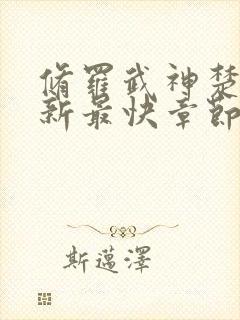 脩羅武神楚
新最快章節
斯邁澤